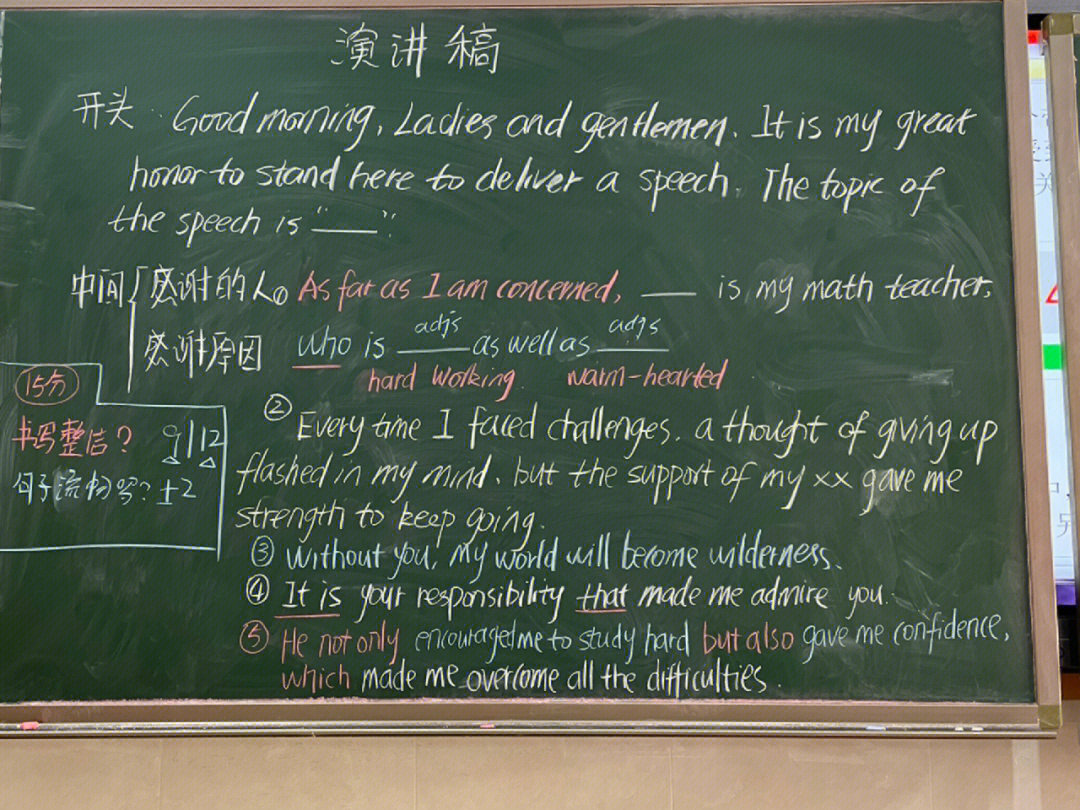 演讲稿
开头. Good morning, Ladies and gentlemen. It is my great
honor to stand here to deliver a speech. The topic of
the speech is "____".
中间 感谢的人 ① As far as I am concerned, ____ is my math teacher,
adjs adjs
感谢原因 who is ____ as well as ____
hard working. warm-hearted
② Every time I faced challenges, a thought of giving up
flashed in my mind, but the support of my xx gave me
strength to keep going.
③ Without you, my world will become wilderness.
④ It is your responsibility that made me admire you.
⑤ He not only encouraged me to study hard but also gave me confidence,
which made me overcome all the difficulties.
15分
书写整洁? 9|12
句子流畅吗? ±2